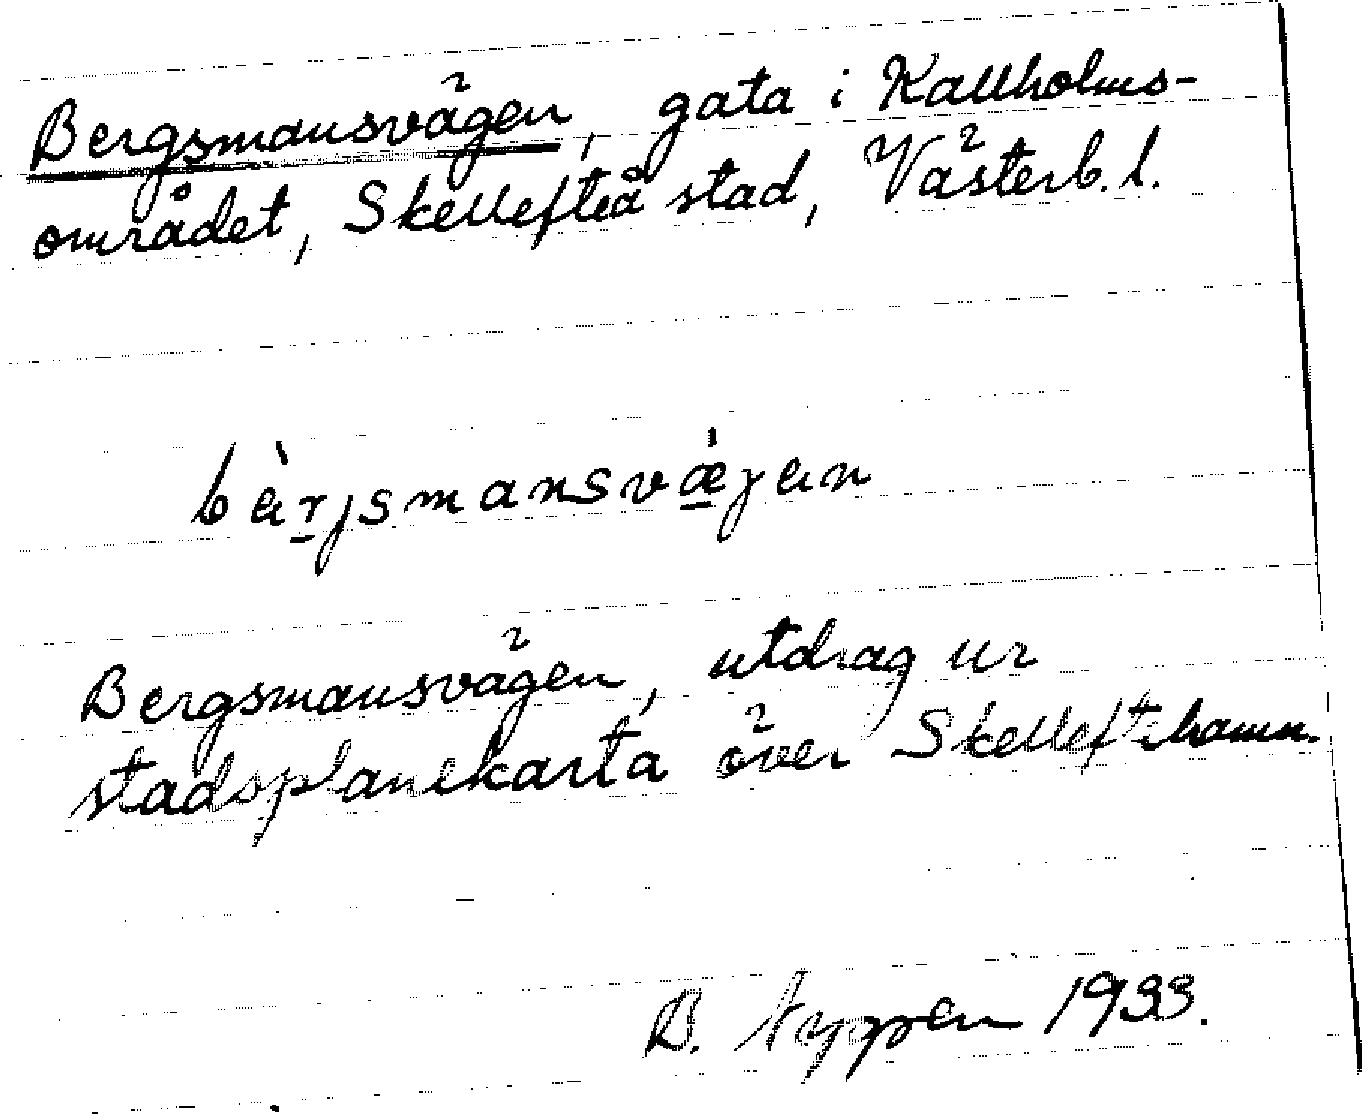 Bergsmansvägen, gata i Kallholms-
området, Skellefteå stad, Västerb. l.
bàrjsmansvæ̀jan
Bergsmansvägen, utdrag ur
stadsplanekarta över Skelleftehamn.
B. 1933.